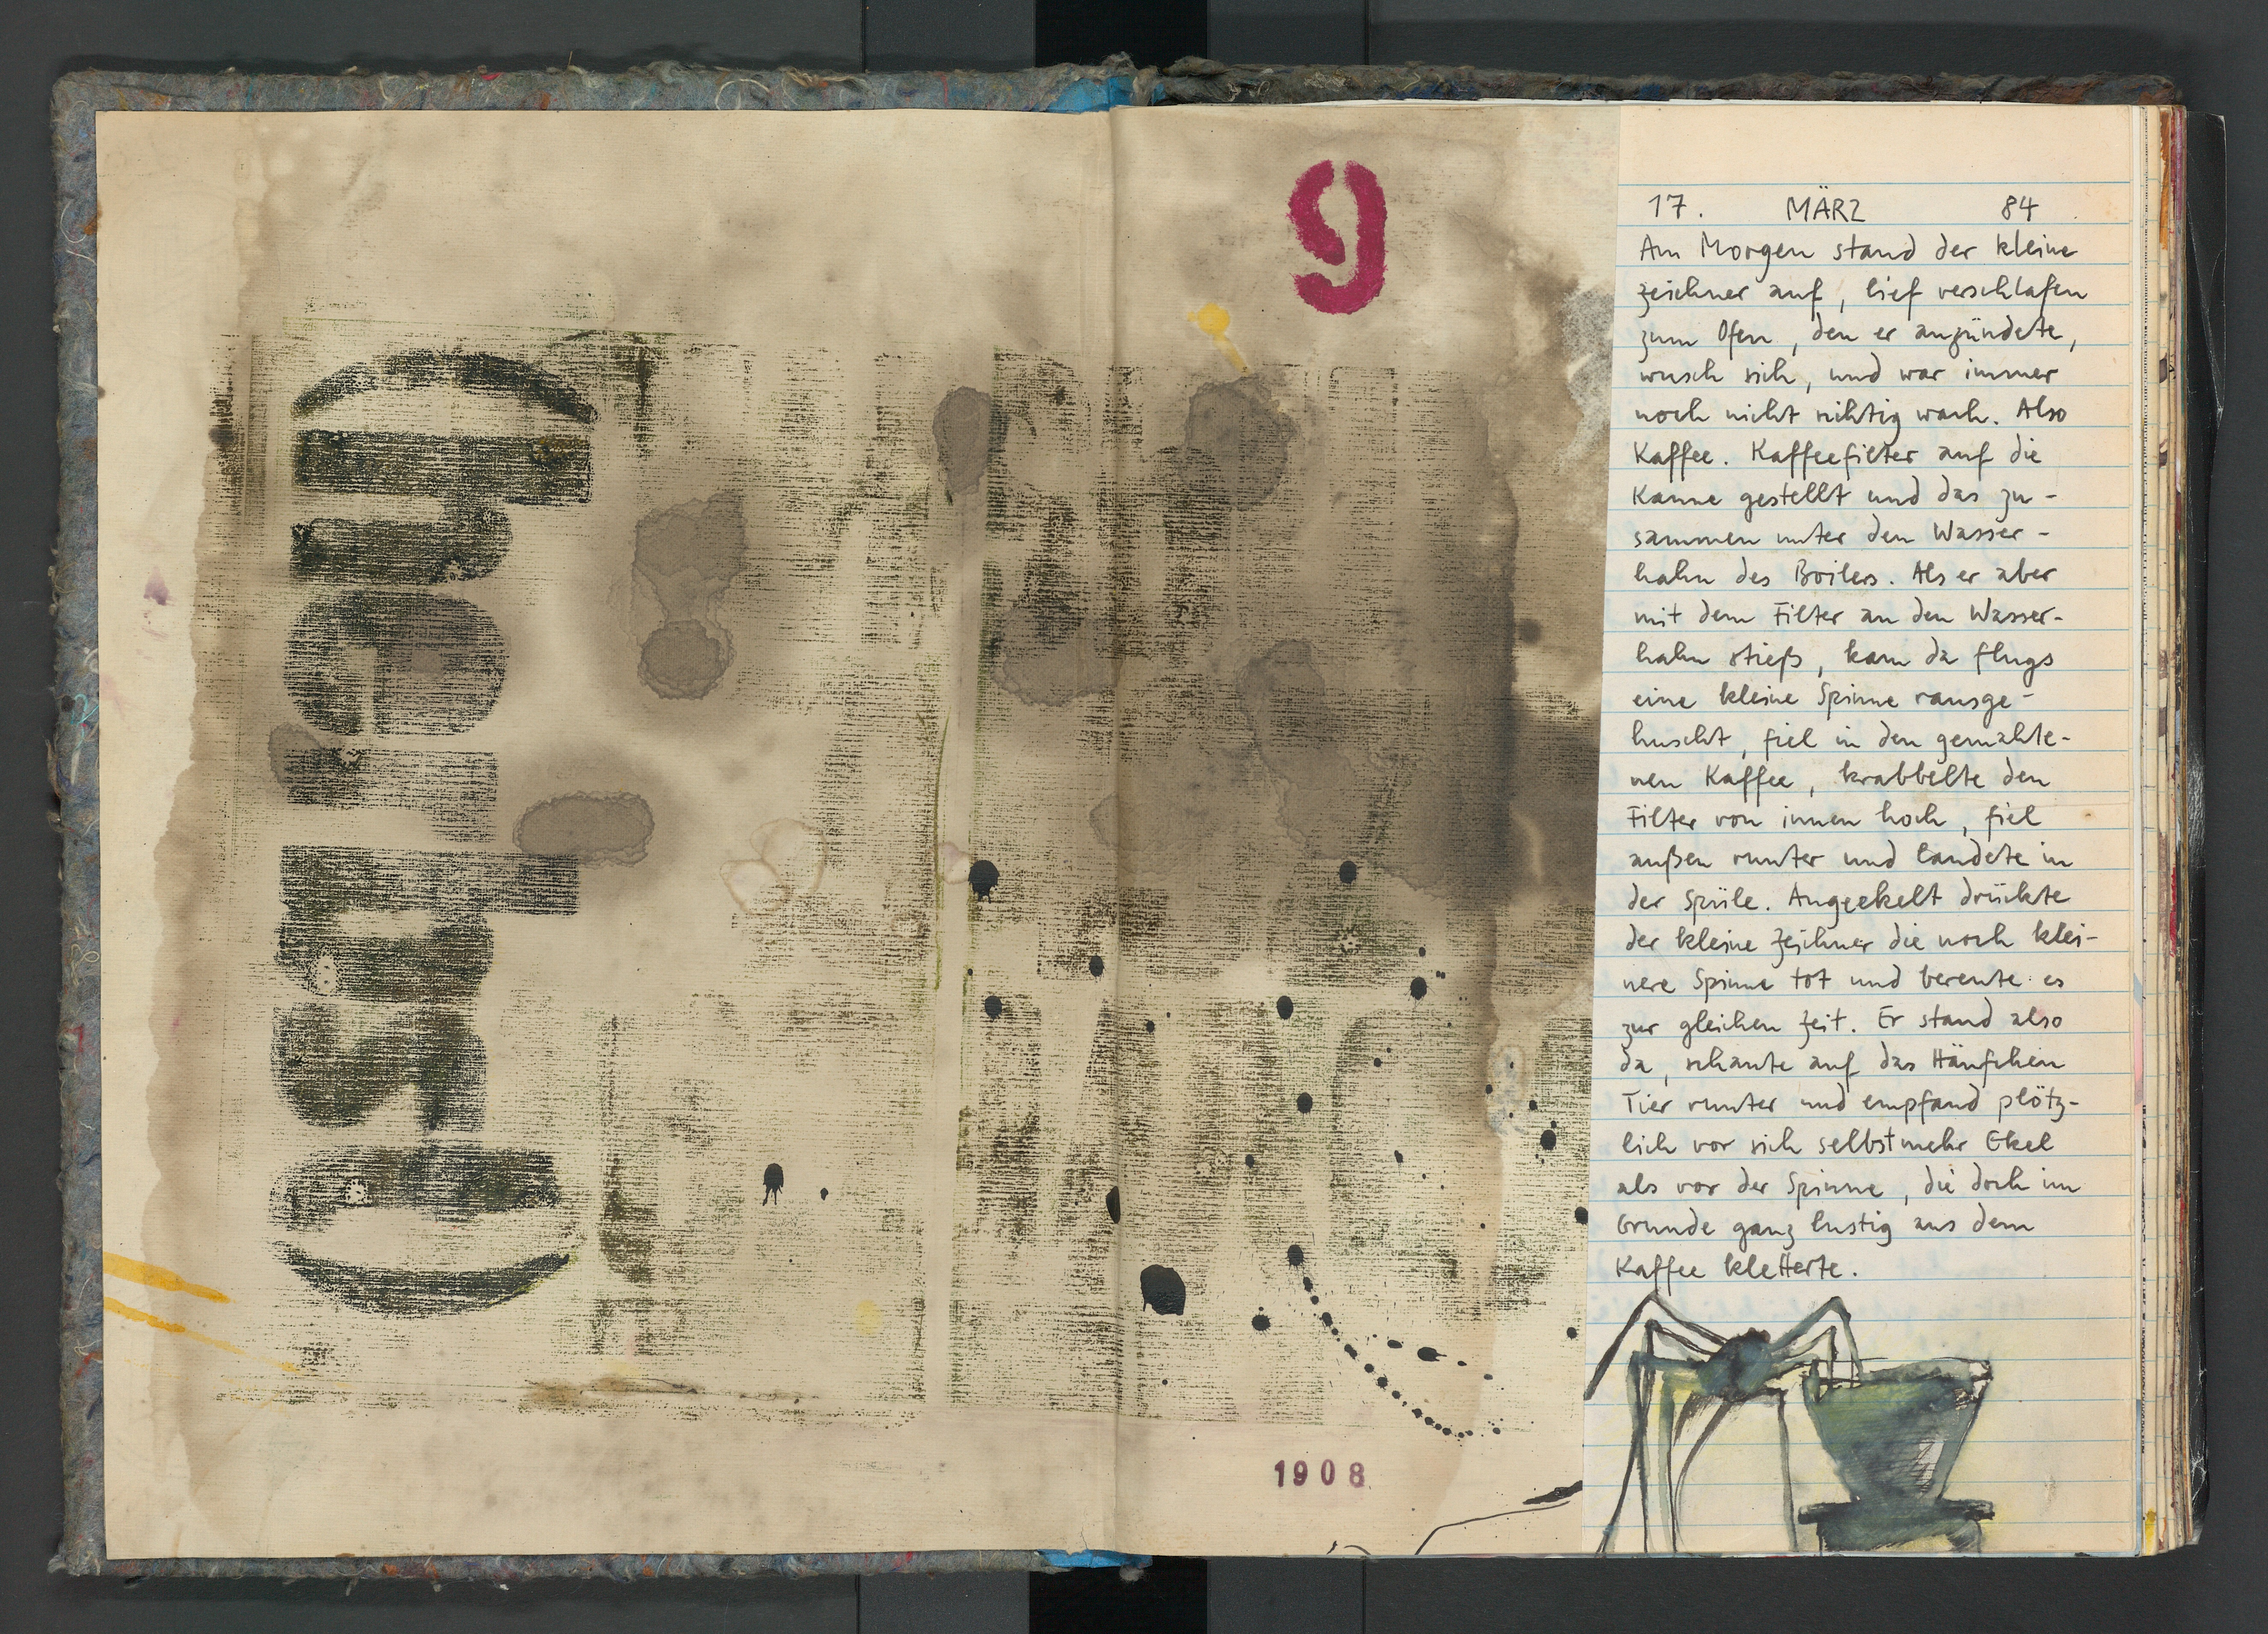 9
17. MÄRZ 84
Am Morgen stand der kleine
Zeichner auf, lief verschlafen
zum Ofen, den er anzündete,
wusch sich, und war immer
noch nicht richtig wach. Also
Kaffee. Kaffeefilter auf die
Kanne gestellt und das zu-
sammen unter den Wasser-
hahn des Boilers. Als er aber
mit dem Filter an den Wasser-
hahn stieß, kam da flugs
eine kleine Spinne rausge-
huscht, fiel in den gemahle-
nen Kaffee, krabbelte den
Filter von innen hoch, fiel
außen runter und landete in
der Spüle. Angeekelt drückte
der kleine Zeichner die noch klei-
nere Spinne tot und bereute es
zur gleichen Zeit. Er stand also
da, schaute auf das Häufchen
Tier runter und empfand plötz-
lich vor sich selbst mehr Ekel
als vor der Spinne, die doch im
Grunde ganz lustig aus dem
Kaffee kletterte.
1908